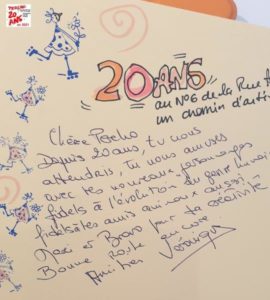 20 ANS
20 ANS
au N°6 de la Rue
un chemin d'arti
Chère Perlin
Depuis 20 ans, tu nous
attendais, tu nous amuses
avec tes nouveaux personnages
fidels à l'évolution du genre humain
fidels à tes amis animaux aussi
Merci et Bravo pour ta créativité
Bonne Route encore
Amitiés
Véronique